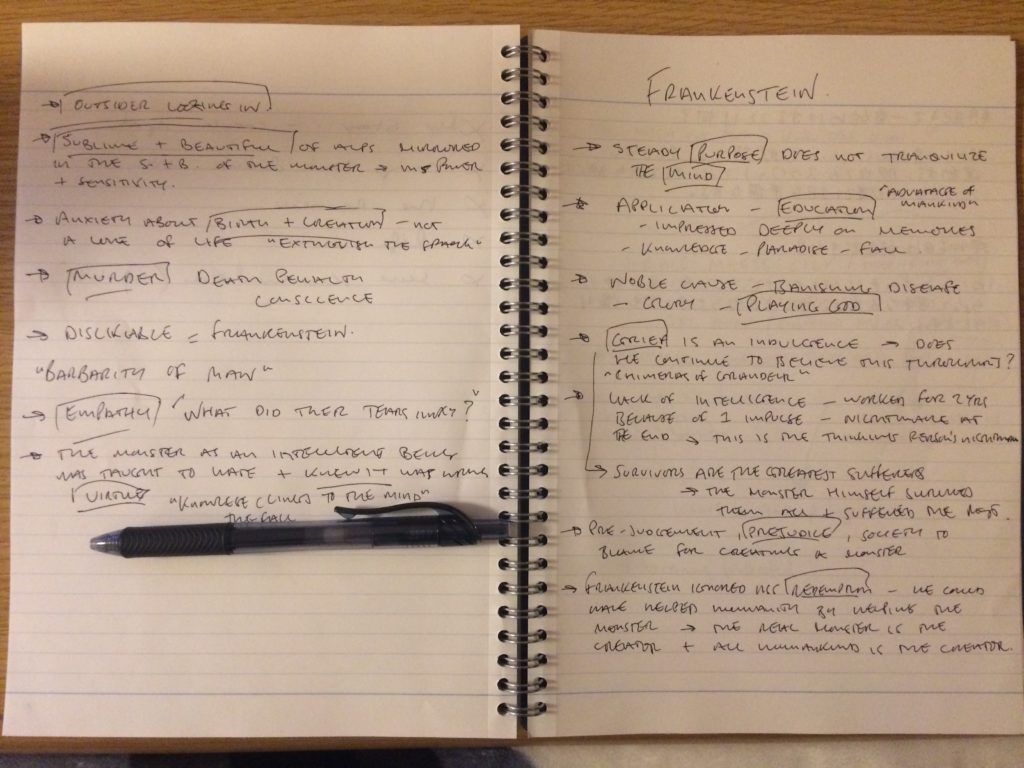 → OUTSIDER LOOKING IN
→ SUBLIME + BEAUTIFUL OF ALPS MIRRORED
IN THE S + B OF THE MONSTER → HIS POWER
+ SENSITIVITY.
→ ANXIETY ABOUT BIRTH + CREATION - NOT
A LOVE OF LIFE "EXTINGUISH THE SPARK"
→ MURDER DEATH PENALTY
CONSCIENCE
→ DISLIKABLE = FRANKENSTEIN.
"BARBARITY OF MAN"
→ EMPATHY "WHAT DID THEIR TEARS IMPLY?"
→ THE MONSTER AS AN INTELLIGENT BEING
WAS TAUGHT TO HATE + KNEW IT WAS WRONG
VIRTUE "KNOWLEGE CLINGS TO THE MIND"
THE FALL
FRANKENSTEIN.
→ STEADY PURPOSE DOES NOT TRANQUILIZE
THE MIND
→ APPLICATION - EDUCATION "ADVANTAGE OF MANKIND"
- IMPRESSED DEEPLY ON MEMORIES
- KNOWLEDGE - PARADISE - FALL
→ NOBLE CAUSE - BANISHING DISEASE
- GLORY - PLAYING GOD
→ GRIEF IS AN INDULGENCE → DOES
HE CONTINUE TO BELIEVE THIS THROUGHOUT?
"CHIMERAS OF GRANDEUR"
→ LACK OF INTELLIGENCE - WORKED FOR 2 YRS
BECAUSE OF 1 IMPULSE - NIGHTMARE AT
THE END → THIS IS THE THINKING PERSON'S NIGHTMARE
→ SURVIVORS ARE THE GREATEST SUFFERERS
→ THE MONSTER HIMSELF SURVIVED
THEM ALL + SUFFERED THE MOST.
→ PRE-JUDGEMENT, PREJUDICE, SOCIETY TO
BLAME FOR CREATING A MONSTER
→ FRANKENSTEIN IGNORED HIS REDEMPTION - HE COULD
HAVE HELPED HUMANITY BY HELPING THE
MONSTER → THE REAL MONSTER IS THE
CREATOR + ALL HUMANKIND IS THE CREATOR.